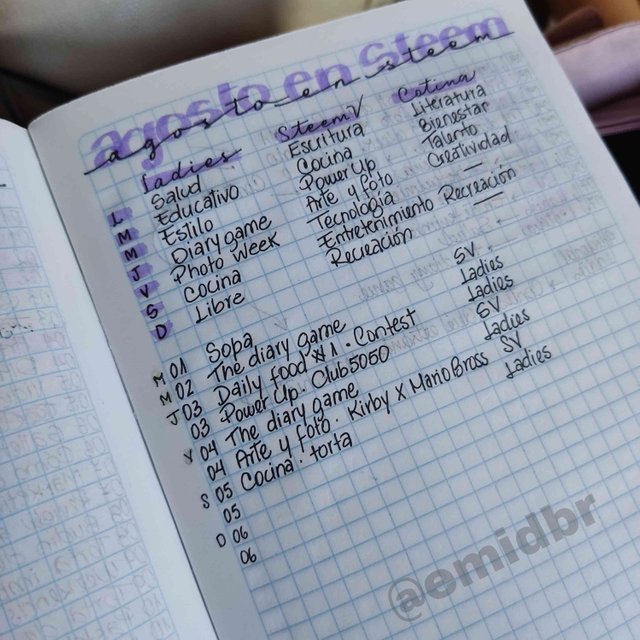 agosto en Steem
agosto en steem
ladies SteemV Cotina
L Salud Escritura Literatura
M Educativo Cocina Bienestar
M Estilo Power Up Talento
J Diary game Arte y foto Creatividad
V Photo Week Tecnología —
S Cocina Entretenimiento Recreación
D Libre Recreación —
M 01 Sopa SV
M 02 The diary game Ladies
J 03 Daily food #1 · Contest Ladies
03 Power Up: Club5050 SV
V 04 The diary game Ladies
04 Arte y foto: Kirby x Mario Bross SV
S 05 Cocina: torta Ladies
05
D 06
06
@emidbr